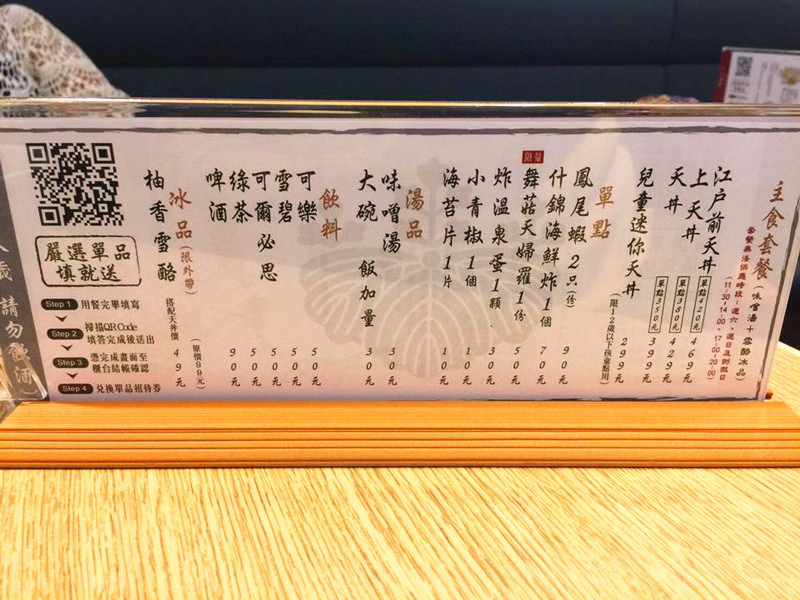 主食套餐(味噌湯+雪酪冰品)
套餐無法供應時段:週六、週日及例假日
(11:30-14:00、17:00-20:00)
江戶前天丼 單點420元 469元
上天丼 單點380元 429元
天丼 單點350元 399元
兒童迷你天丼 299元
(限12歲以下孩童點用)
單點
鳳尾蝦2只(份) 90元
什錦海鮮炸1個 70元
限量
舞菇天婦羅1份 50元
炸溫泉蛋1顆 30元
小青椒1個 10元
海苔片1片 10元
湯品
味噌湯 30元
大碗 飯加量 30元
飲料
可樂 50元
雪碧 50元
可爾必思 50元
綠茶 50元
啤酒 90元
冰品(限外帶)
(原價99元)
柚香雪酪 搭配天丼價 49元
嚴選單品
填就送
Step 1 用餐完畢填寫
Step 2 掃描QR Code
填答完成後送出
Step 3 憑完成畫面至
櫃台結帳確認
Step 4 兌換單品招待券
請勿飲酒